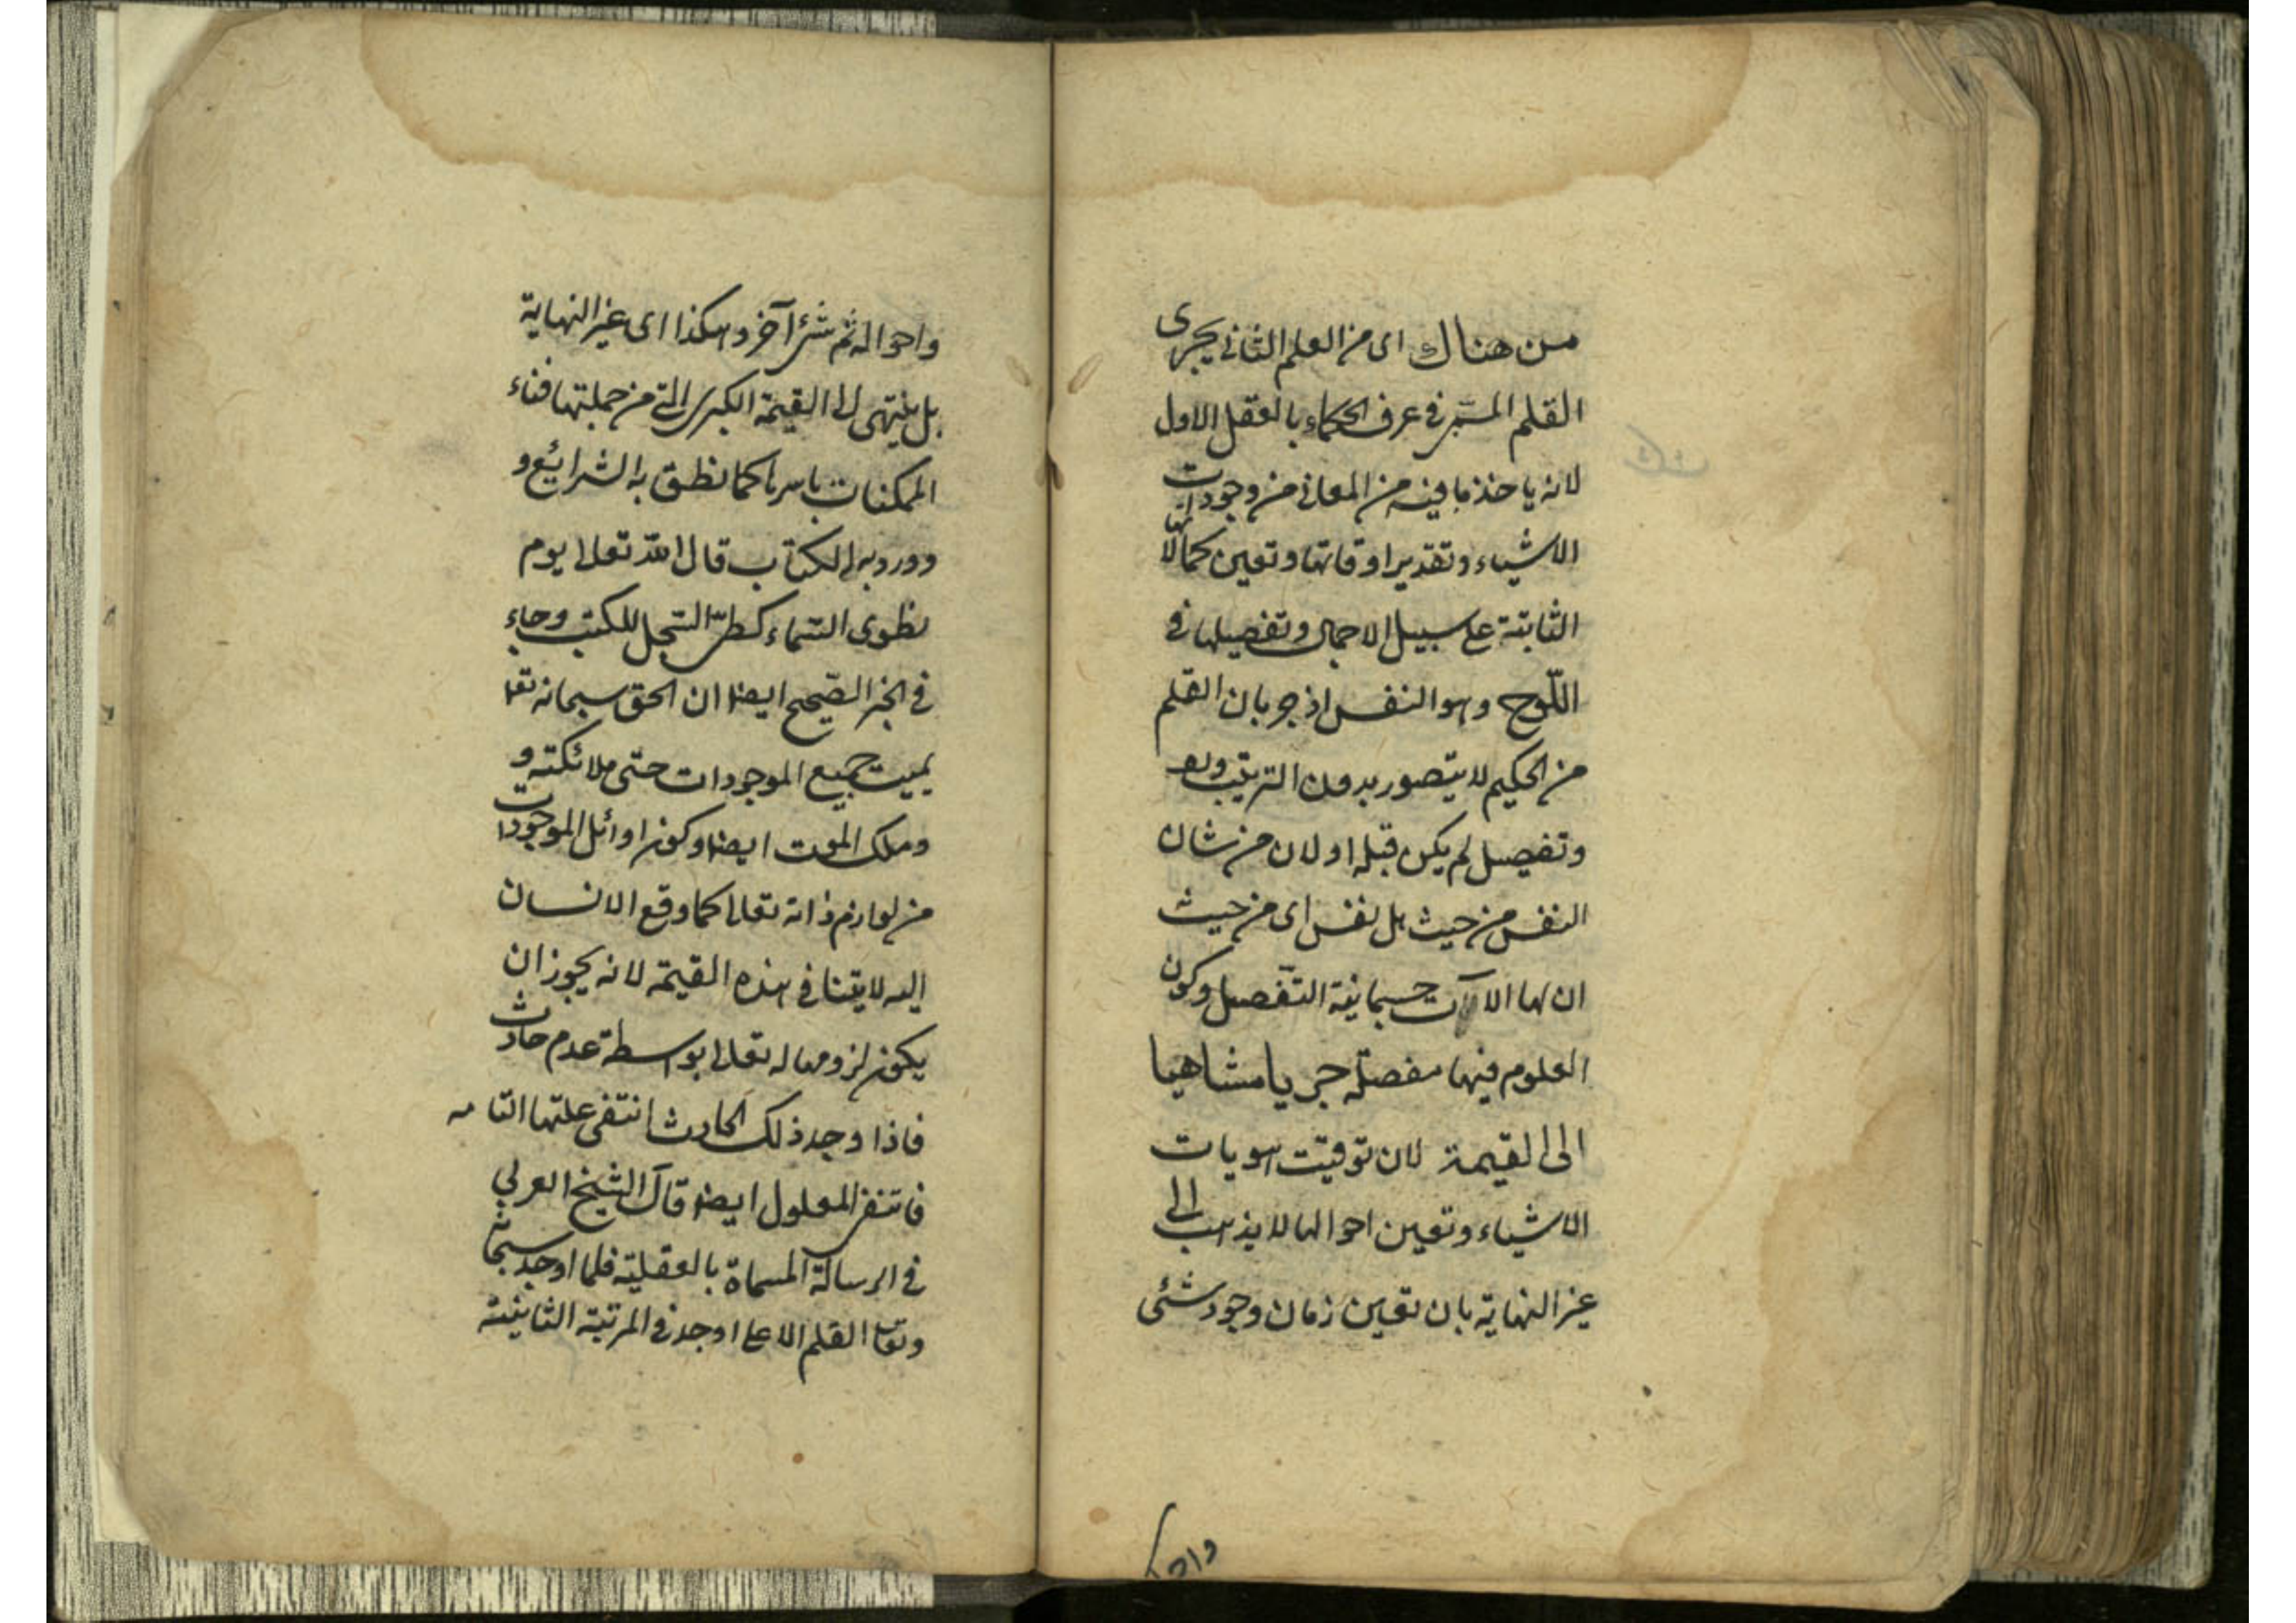 من هناك اى من العلم الثانى يجرى
القلم المسمى فى عرف الحكماء بالعقل الاول
لانه ياخذ ما فيه من المعانى من وجودات
الاشياء وتقدير اوقاتها وتعين كمالاتها
الثابتة على سبيل الاجمال وتفصيلها فى
اللّوح وهو النفس اذ جريان القلم
من الحكيم لا يتصور بدون الترتيب
وتفصيل لم يكن قبله او لان من شان
النفس من حيث هى نفس اى من حيث
ان لها الالآت جسمانية التفصيل وكون
العلوم فيها مفصلة جريا متناهيا
الى القيمة لان توقيت هويات
الاشياء وتعين احوالها لا يذهب الى
غير النهاية بان تعين زمان وجود شئى
واحو
واحواله ثم شئ آخر وهكذا اى غير النهاية
بل ينتهى الى القيمة الكبرى التى من جملتها فناء
الممكنات باسرها كما نطق به الشرائع و
وورد به الكتاب قال الله تعالى يوم
نطوى السّماء كطىّ السّجل للكتب وجاء
فى الخبر الصّحيح ايضا ان الحق سبحانه تعا
يميت جميع الموجودات حتى ملائكته و
وملك الموت ايضا وكون اوائل الموجودات
من لوازم ذاته تعالى كما وقع الانسان
اليه لا يتنافى هذه القيمة لانه يجوز ان
يكون لزومها له تعالى بواسطة عدم حادث
فاذا وجد ذلك الحادث انتفى علتها التامه
فانتفى المعلول ايضا قال الشيخ العربي
فى الرسالة المسماة بالعقلية فلما اوجد سبحانه
وتعا القلم الاعلى اوجد فى المرتبة الثانية